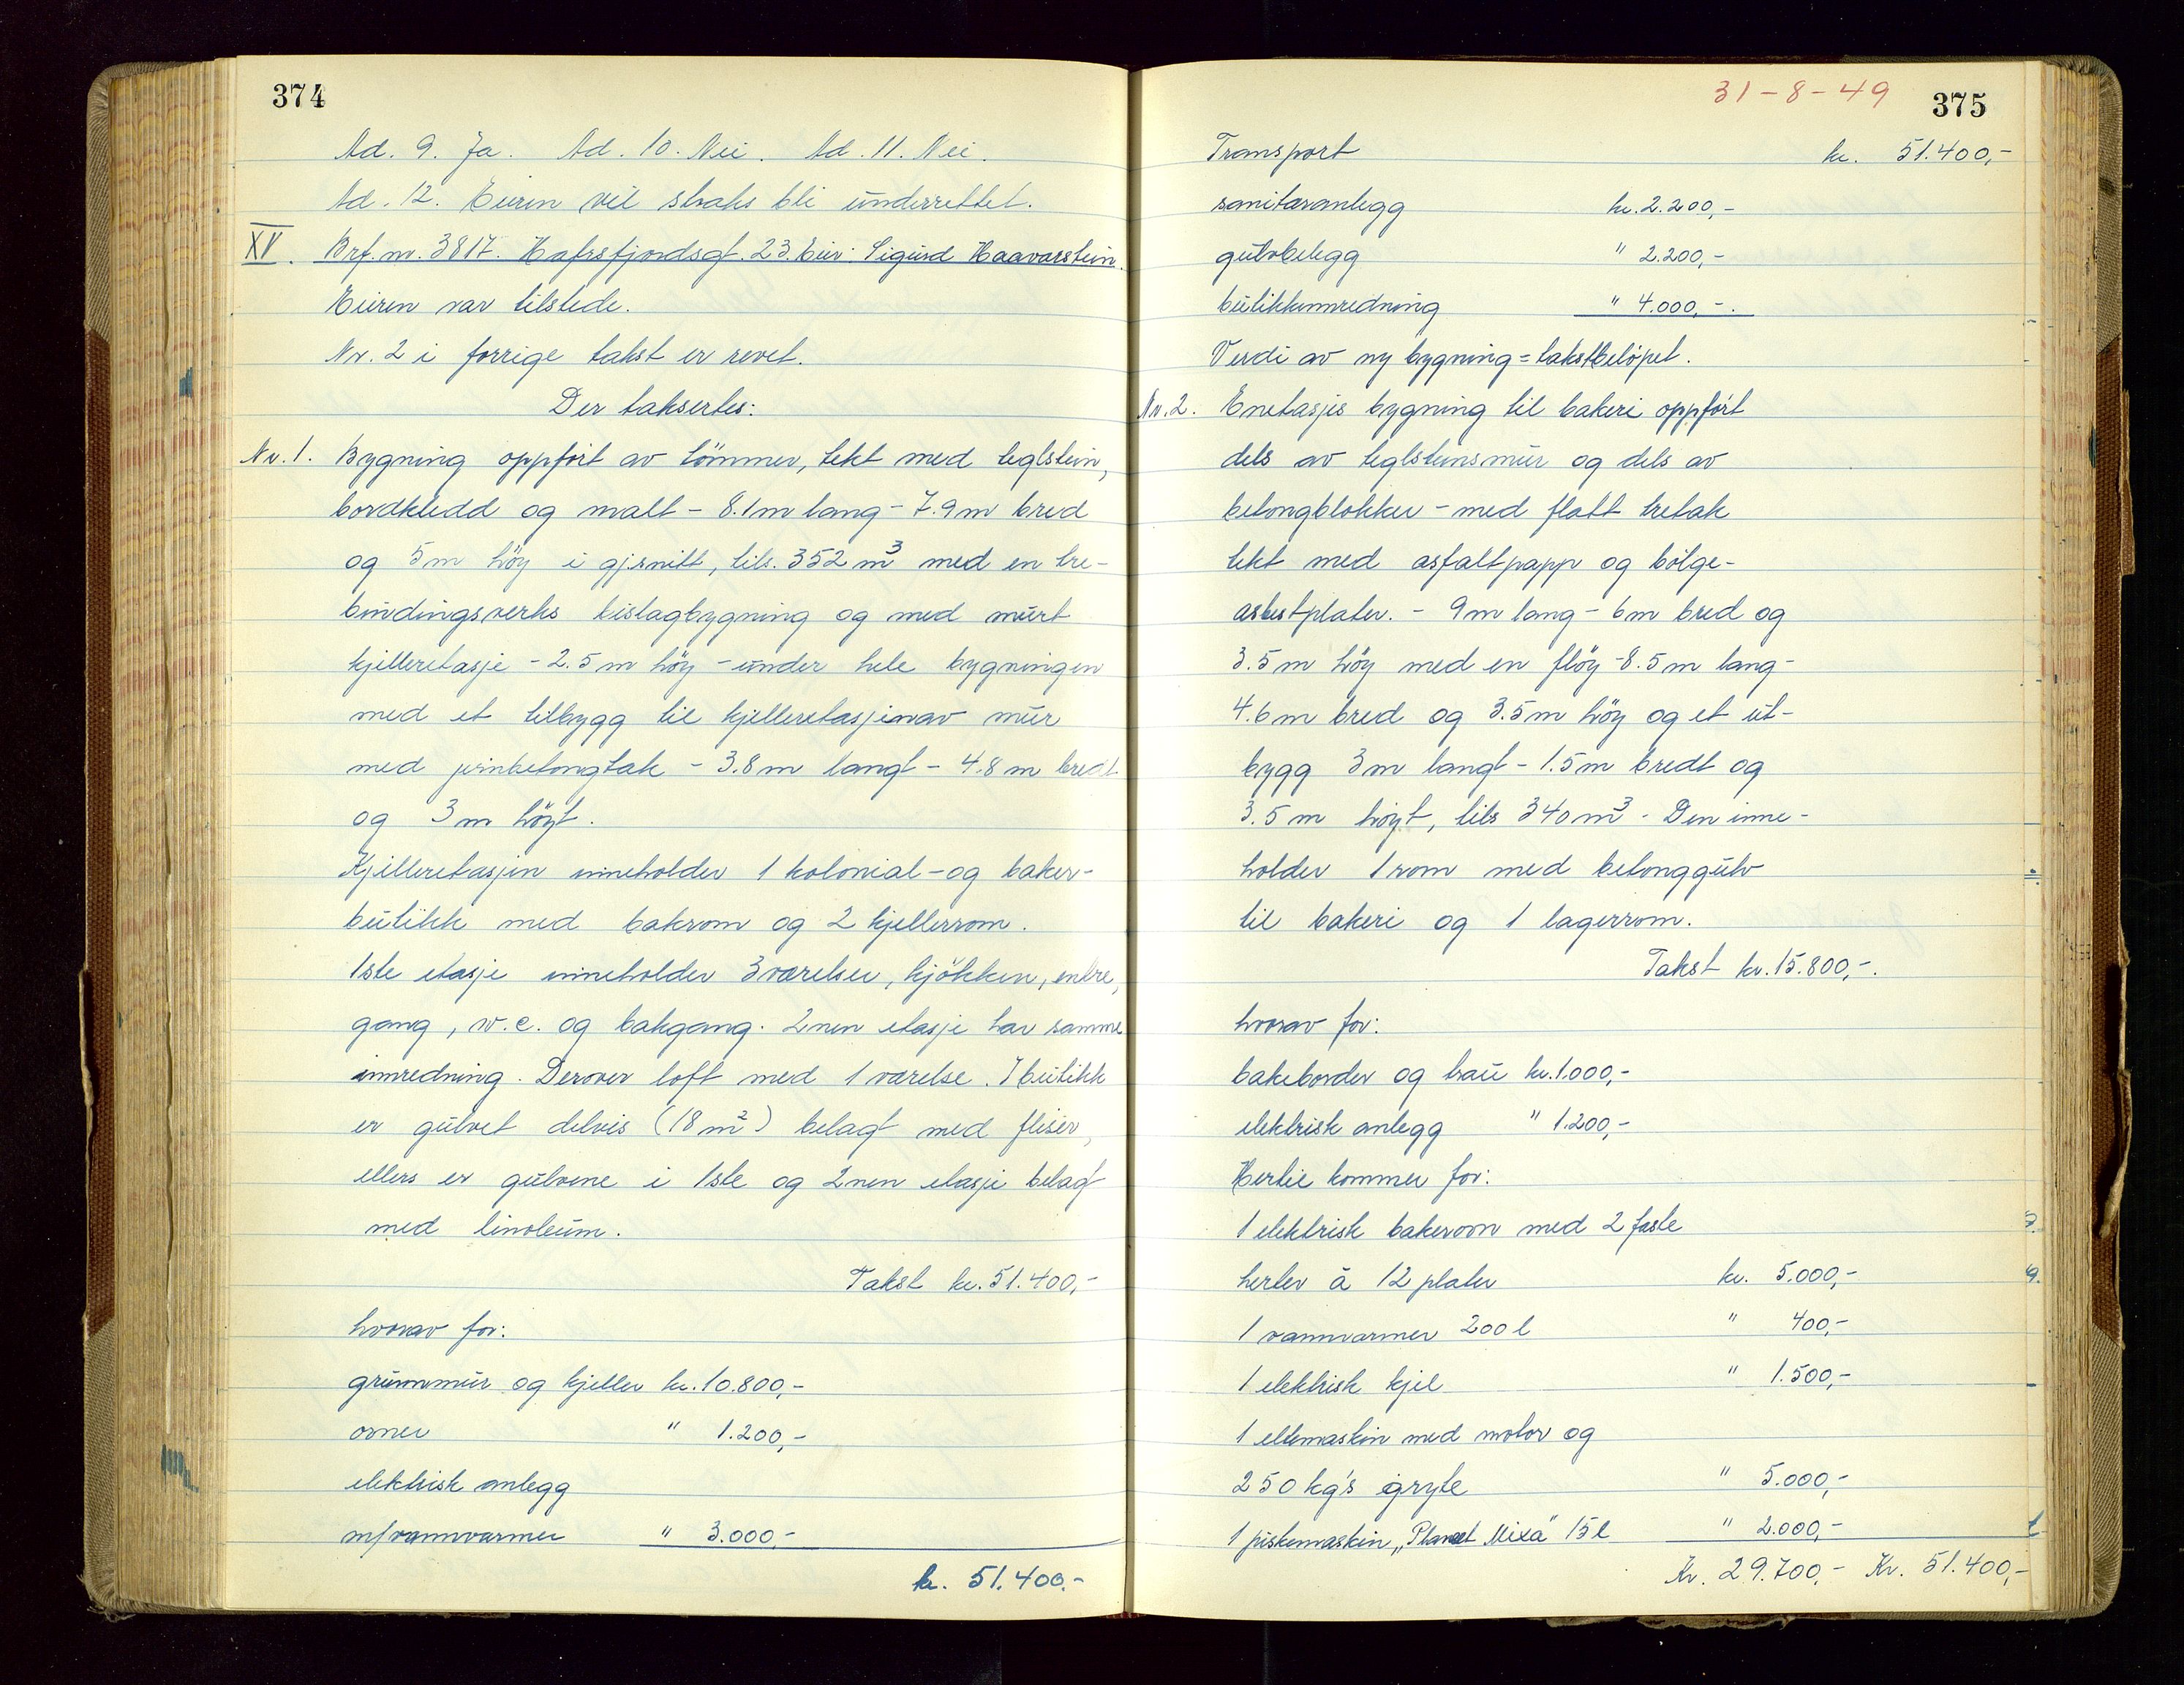 374
Ad. 9. Ja. Ad. 10. Nei. Ad. 11. Nei.
Ad. 12. Eieren vil straks bli underrettet.
XV. Brf. nr. 3817. Hafrsfjordsgt. 23. Eier: Sigurd Haavarstein.
Eieren var tilstede.
Nr. 2 i forrige takst er revet.
Der taksertes:
Nr. 1. Bygning oppført av tömmer, tekt med teglstein,
bordkledd og malt - 8.1m lang - 7.9m bred
og 5m höy i gj.snitt, tils. 352 m³ med en tre-
bindingsverks bislagbygning og med murt
kjelleretasje - 2.5 m höy - under hele bygningen
med et tilbygg til kjelleretasjen av mur
med jernbetongtak - 3.8m langt - 4.8 m bredt
og 3m höyt.
Kjelleretasjen inneholder 1 kolonial- og baker-
butikk med bakrom og 2 kjellerrom.
1ste etasje inneholder 3 værelser, kjökken, entre,
gang, w.c. og bakgang. 2nen etasje har samme
innredning. Derover loft med 1 værelse. I butikk
er gulvet delvis (18 m²) belagt med fliser,
ellers er gulvene i 1ste og 2nen etasje belagt
med linoleum.
Takst kr. 51.400,-
hvorav for:
grunnmur og kjeller kr. 10.800,-
ovner " 1.200,-
elektrisk anlegg
m/vannvarmer " 3.000,-
kr. 51.400.-
31-8-49
375
Transport kr. 51.400,-
sanitæranlegg kr. 2.200,-
gulvbelegg " 2.200,-
butikkinnredning " 4.000,-.
Verdi av ny bygning = takstbelöpet.
Nr. 2. Enetasjes bygning til bakeri oppfört
dels av teglsteinsmur og dels av
betongblokker - med flatt tretak
tekt med asfaltpapp og bölge-
asbestplater. - 9m lang - 6m bred og
3.5m höy med en flöy - 8.5m lang -
4.6m bred og 3.5m höy og et ut-
bygg 3m langt - 1.5m bredt og
3.5 m höyt, tils 340 m³ - Den inne-
holder 1 rom med betonggulv
til bakeri og 1 lagerrom.
Takst kr. 15.800,-.
hvorav for:
bakeborder og trau kr. 1.000,-
elektrisk anlegg " 1.200,-
Hertil kommer for:
1 elektrisk bakerovn med 2 faste
herter à 12 plater kr. 5.000,-
1 vannvarmer 200 l " 400,-
1 elektrisk kjel " 1.500,-
1 eltemaskin med motor og
250 kg's gryte " 5.000,-
1 piskemaskin „Planet Mixa" 15 l " 2.000,-
Kr. 29.700,- Kr. 51.400,-